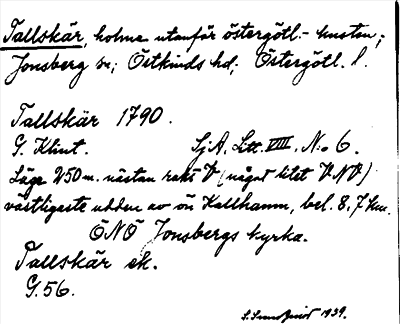 Tallskär, holme utanför östergötl.-kusten;
Jonsberg sn; Östkinds hd; Östergötl. l.
Tallskär 1790.
G. Klint. SjA. Litt. VIII. No 6.
Läge 250 m. nästan rakt V (något litet V.NV)
västligaste udden av ön Kallhamn, bel. 8,7 km.
ÖNÖ Jonsbergs kyrka.
Tallskär ek.
G.56.
1939.